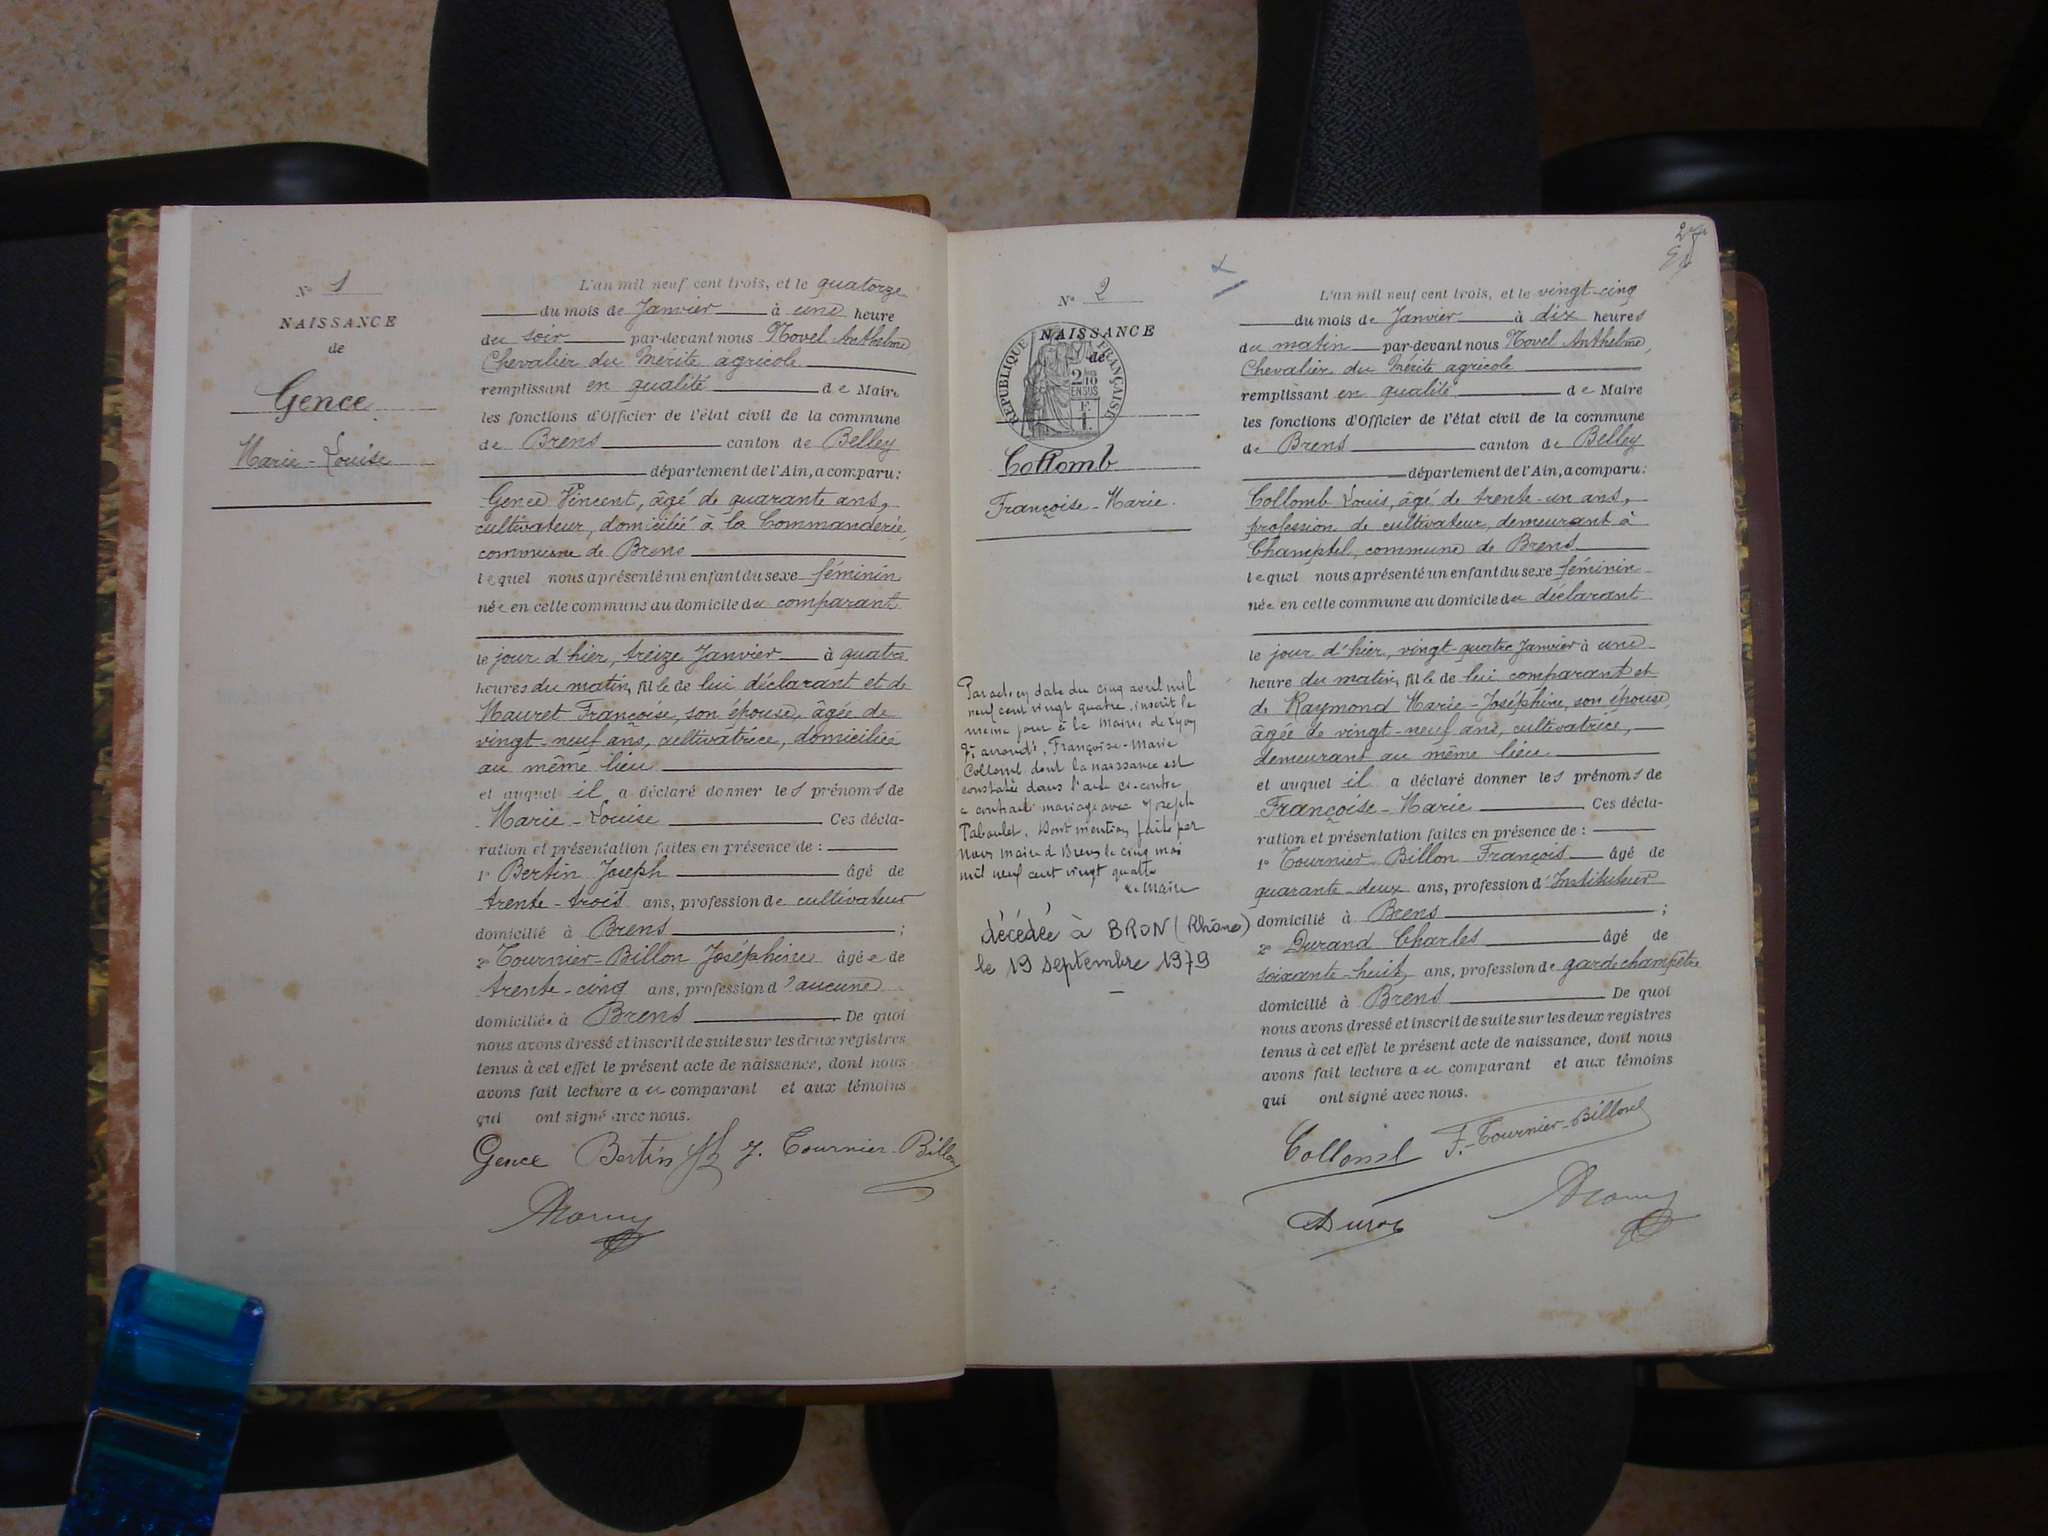 N° 1
NAISSANCE
de
Gence
Marie-Louise
L'an mil neuf cent trois, et le quatorze
du mois de Janvier à une heure
du soir par-devant nous Novel Anthelme
Chevalier du Mérite agricole
remplissant en qualité de Maire
les fonctions d'Officier de l'état civil de la commune
de Brens canton de Belley
département de l'Ain, a comparu:
Gence Vincent, âgé de quarante ans,
cultivateur, domicilié à la Commanderie,
commune de Brens
lequel nous a présenté un enfant du sexe féminin
née en cette commune au domicile du comparant
le jour d'hier, treize Janvier à quatre
heures du matin, fille de lui déclarant et de
Mauret Françoise, son épouse, âgée de
vingt-neuf ans, cultivatrice, domiciliée
au même lieu
et auquel il a déclaré donner les prénoms de
Marie-Louise Ces décla-
ration et présentation faites en présence de :
1° Bertin Joseph âgé de
trente-trois ans, profession de cultivateur
domicilié à Brens ;
2° Tournier-Billon Joséphine âgée de
trente-cinq ans, profession d'aucune
domiciliée à Brens De quoi
nous avons dressé et inscrit de suite sur les deux registres
tenus à cet effet le présent acte de naissance, dont nous
avons fait lecture au comparant et aux témoins
qui ont signé avec nous.
Gence Bertin J. Tournier-Billon
2
N° 2
NAISSANCE
de
RÉPUBLIQUE FRANÇAISE
2/10
EN SUS
Collomb
Françoise-Marie.
Par acte en date du cinq avril mil
neuf cent vingt quatre, inscrit le
même jour à la Mairie de Lyon
7e arrondt, Françoise-Marie
Collomb dont la naissance est
constatée dans l'acte ci-contre
a contracté mariage avec Joseph
Paboulet. Dont mention faite par
Nous maire d Brens le cinq mai
mil neuf cent vingt quatre
Le Maire
décédée à BRON (Rhône)
le 19 septembre 1979
L'an mil neuf cent trois, et le vingt-cinq
du mois de Janvier à dix heures
du matin par-devant nous Novel Anthelme,
Chevalier du Mérite agricole
remplissant en qualité de Maire
les fonctions d'Officier de l'état civil de la commune
de Brens canton de Belley
département de l'Ain, a comparu:
Collomb Louis, âgé de trente-un ans,
profession de cultivateur, demeurant à
Champtel, commune de Brens
lequel nous a présenté un enfant du sexe féminin
née en cette commune au domicile du déclarant
le jour d'hier, vingt-quatre Janvier à une
heure du matin, fille de lui comparant et
de Raymond Marie-Joséphine, son épouse,
âgée de vingt-neuf ans, cultivatrice,
demeurant au même lieu
et auquel il a déclaré donner les prénoms de
Françoise-Marie Ces décla-
ration et présentation faites en présence de :
1° Tournier-Billon François âgé de
quarante-deux ans, profession d'Instituteur
domicilié à Brens ;
2° Durand Charles âgé de
soixante-huit ans, profession de garde champêtre
domicilié à Brens De quoi
nous avons dressé et inscrit de suite sur les deux registres
tenus à cet effet le présent acte de naissance, dont nous
avons fait lecture au comparant et aux témoins
qui ont signé avec nous.
Collomb F. Tournier-Billon